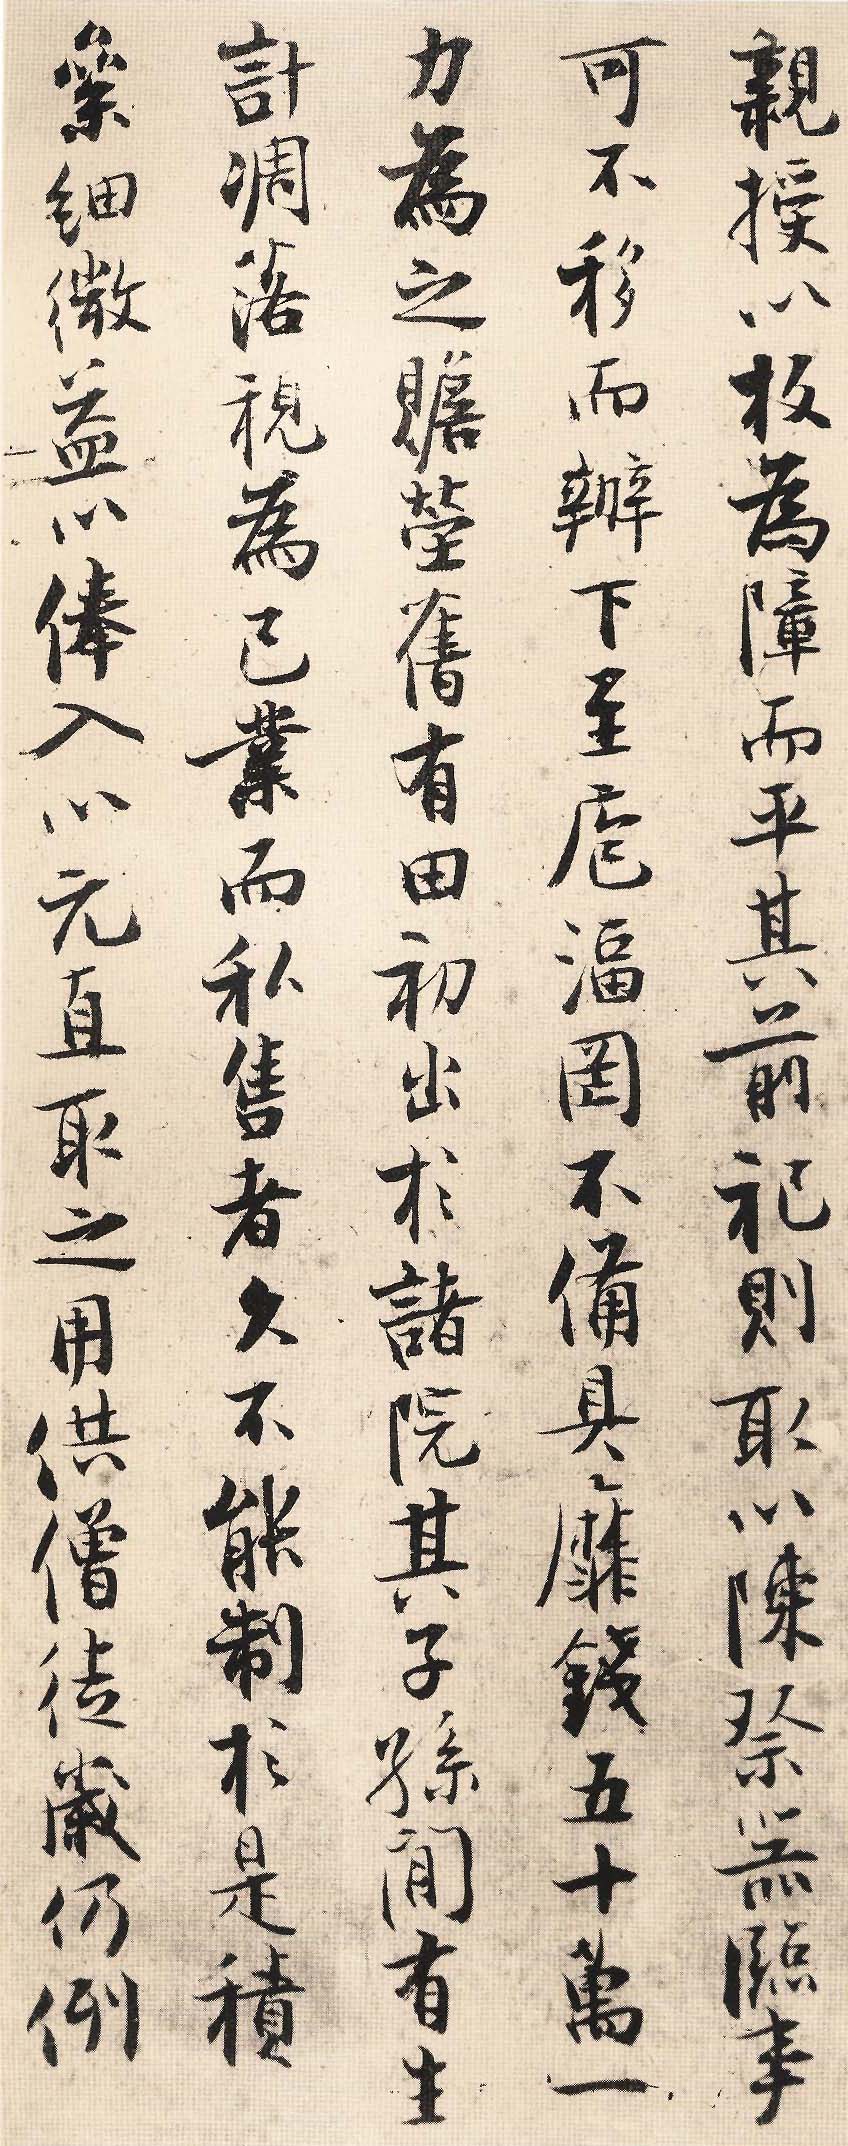 親授以板為障而平其前祀則取以陳祭器臨事
可不移而辦下至庖湢罔不備具靡錢五十萬一
力為之贍塋舊有田初出於諸院其子孫間有生
計凋落視為己業而私售者久不能制於是積
絫細微益以俸入以元直取之用供僧徒歲仍例